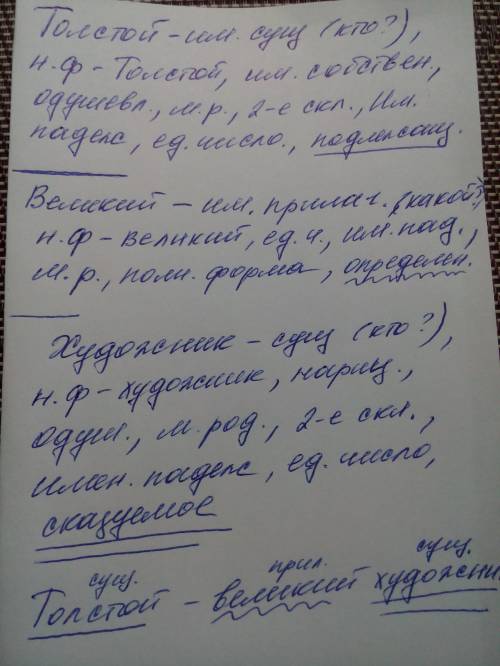 Толстой – им. сущ (кто?),
н.ф – Толстой, им. собствен,
одушевл., м.р., 2-е скл., Им.
падеж, ед. число., подлежащ.
Великий – им. прилаг. (какой?),
н.ф – великий, ед.ч., им. пад.,
м.р., полн. форма, определен.
Художник – сущ (кто?),
н.ф – художник, нариц.,
одуш., м. род., 2-е скл.,
имен. падеж, ед. число,
сказуемое
сущ. прил. сущ.
Толстой – великий художни